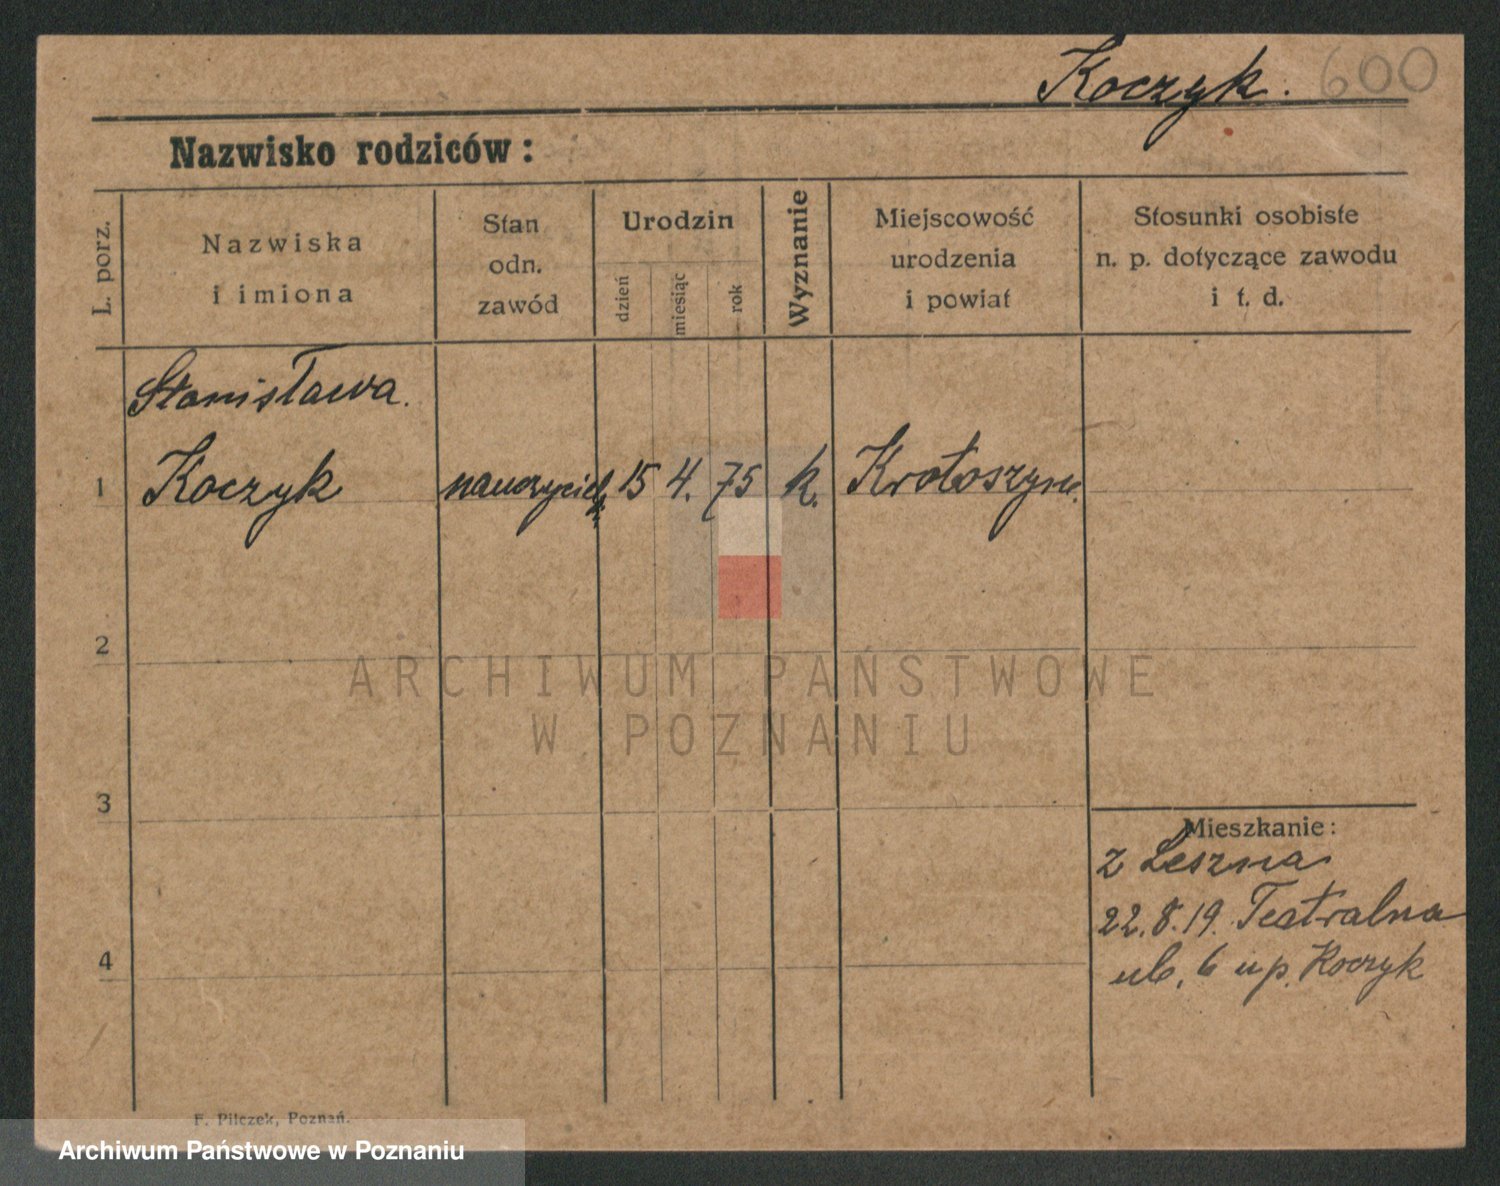 Koczyk. 600
Nazwisko rodziców:
L. porz.
Nazwiska
i imiona
Stan
odn.
zawód
Urodzin
dzień
miesiąc
rok
Wyznanie
Miejscowość
urodzenia
i powiat
Stosunki osobiste
n. p. dotyczące zawodu
i t. d.
Stanisława.
1 Koczyk 15 4. 75 k. Krotoszyn.
2
ARCHIWUM PAŃSTWOWE
W POZNANIU
3
Mieszkanie:
z Leszna
22.8.19. Teatralna
4
6 u p. Koczyk
F. Pilczek, Poznań.
Archiwum Państwowe w Poznaniu